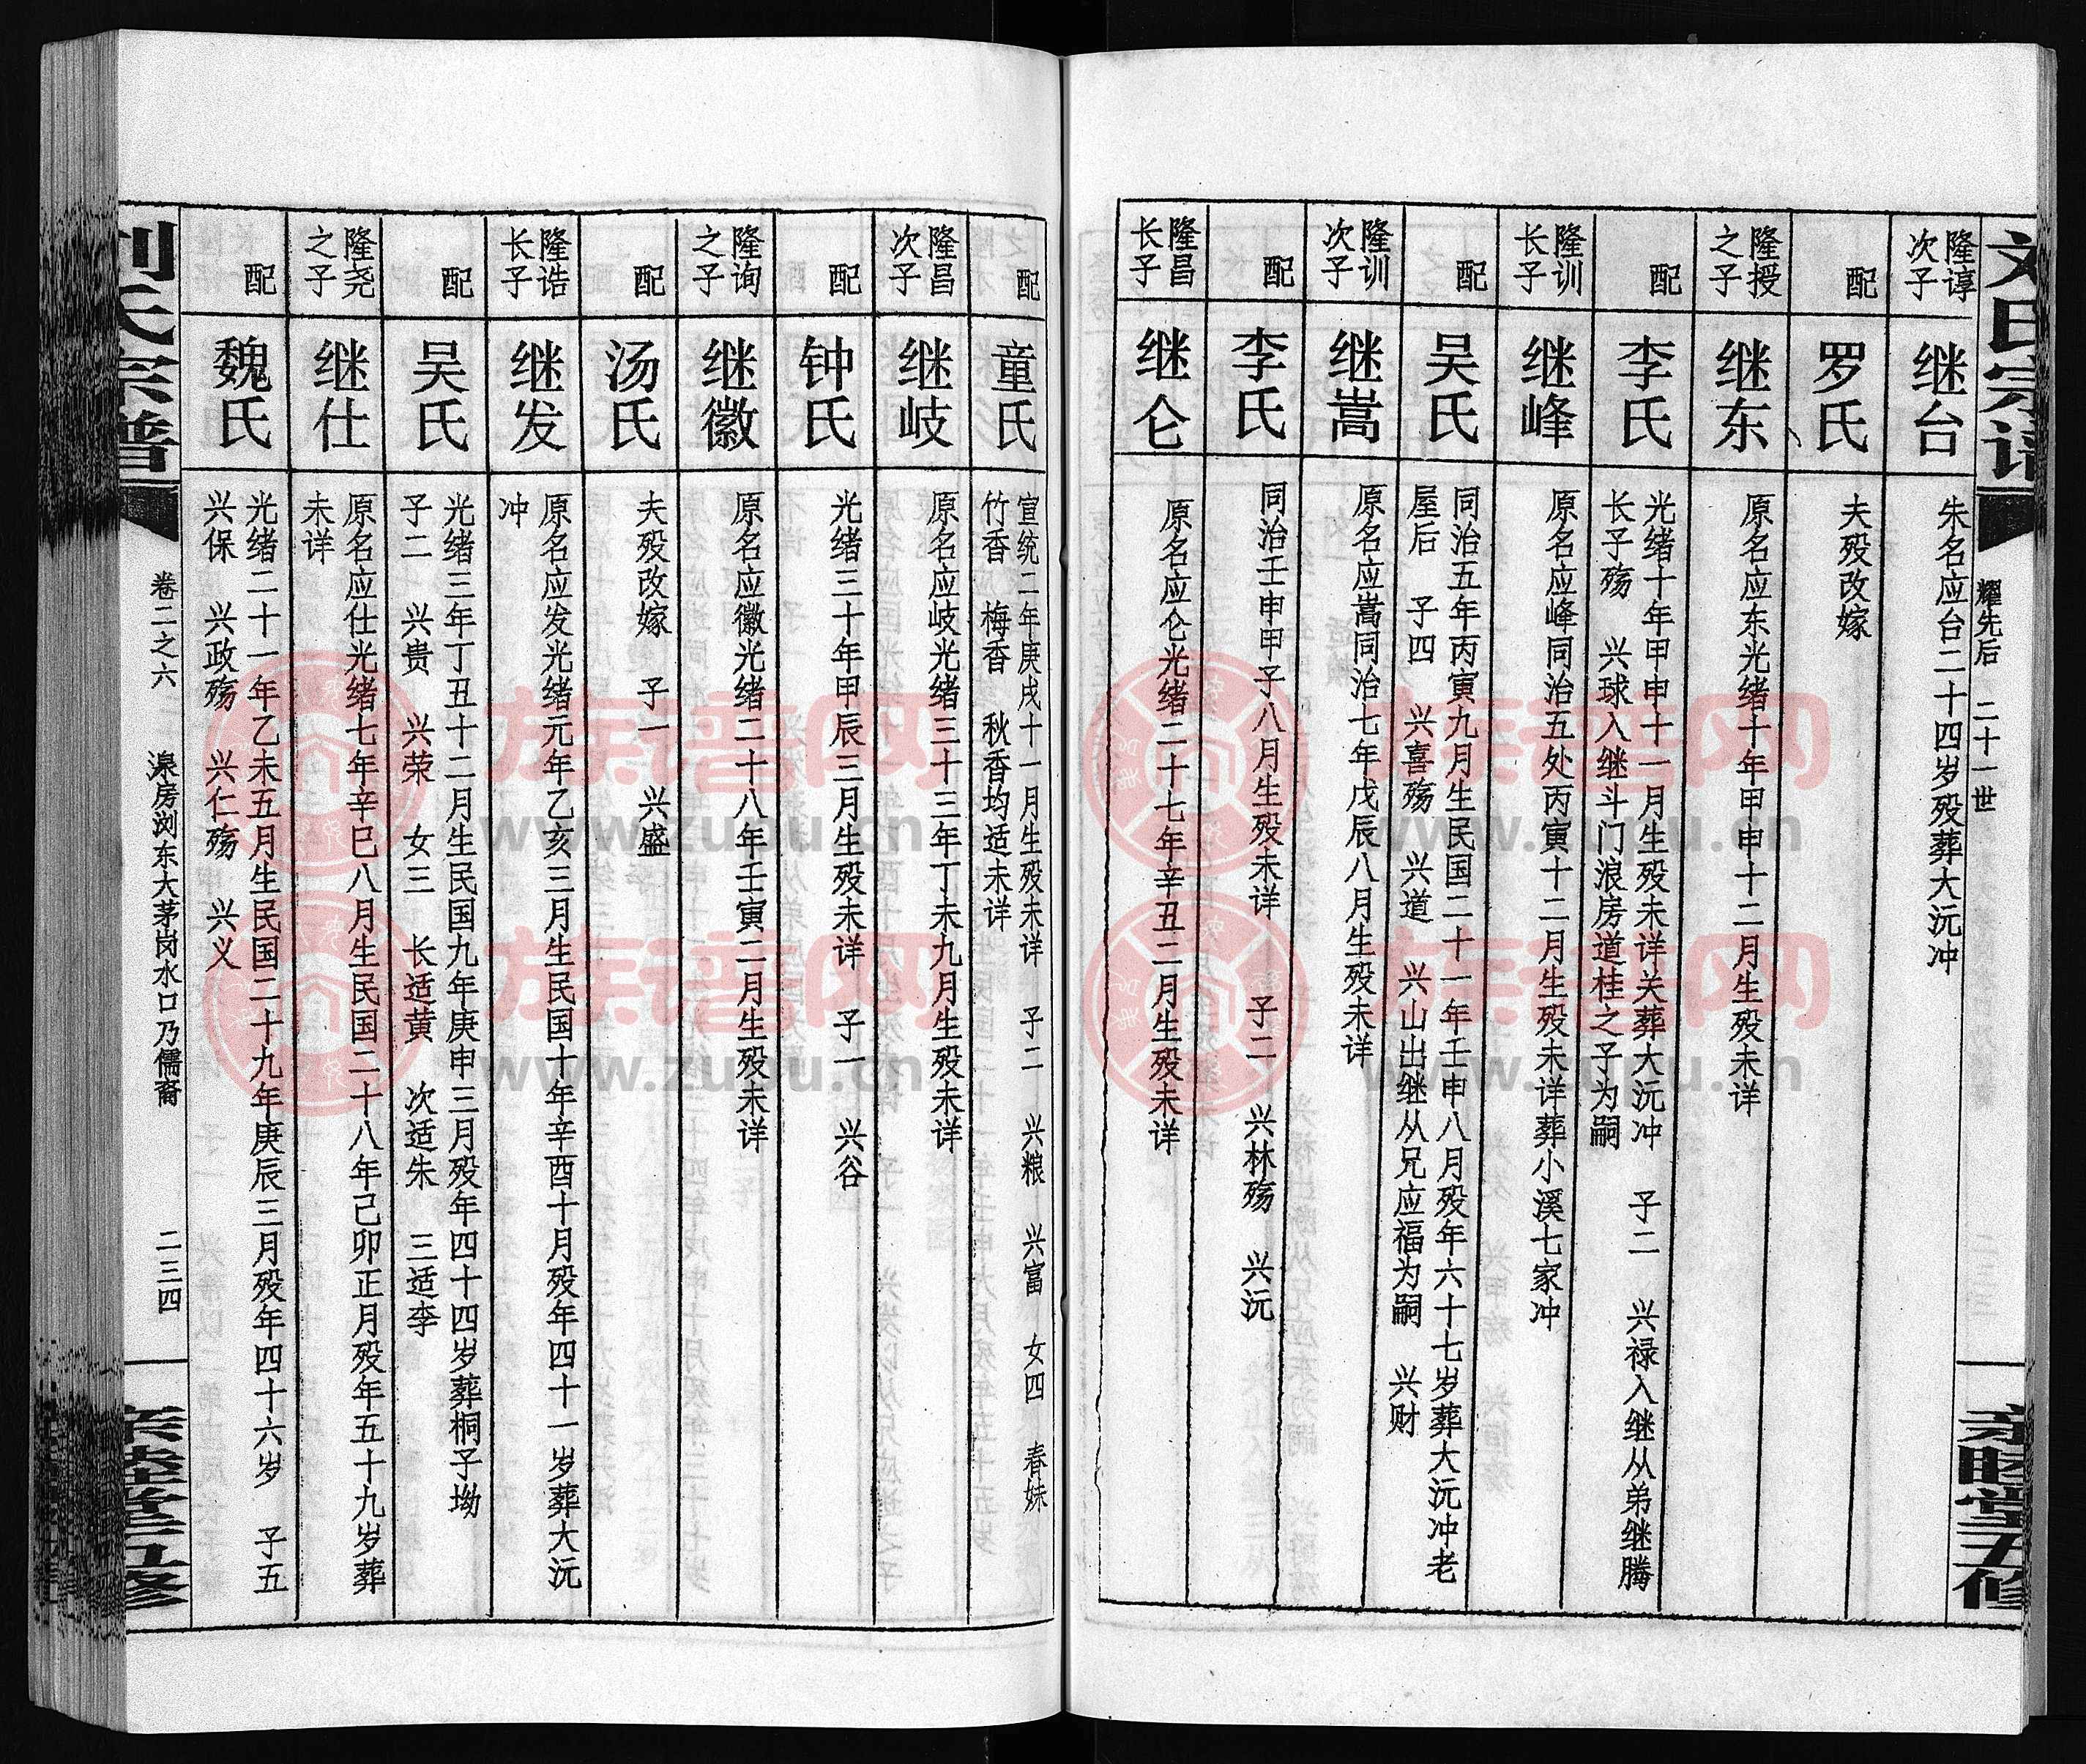 刘氏宗谱
耀先后 二十一世
亲睦堂五修
隆谆
次子
继台
朱名应台二十四岁殁葬大沅冲
配
罗氏
夫殁改嫁
隆授
之子
继东
原名应东光绪十年甲申十二月生殁未详
配
李氏
光绪十年甲申十一月生殁未详关葬大沅冲 子二 兴禄入继从弟继腾
长子殇 兴球入继斗门浪房道桂之子为嗣
隆训
长子
继峰
原名应峰同治五处丙寅十二月生殁未详葬小溪七家冲
配
吴氏
同治五年丙寅九月生民国二十一年壬申八月殁年六十七岁葬大沅冲老
屋后 子四 兴喜殇 兴道 兴山出继从兄应福为嗣 兴财
隆训
次子
继嵩
原名应嵩同治七年戊辰八月生殁未详
配
李氏
同治壬申甲子八月生殁未详 子二 兴林殇 兴沅
隆昌
长子
继仑
原名应仑光绪二十七年辛丑二月生殁未详
配
童氏
宣统二年庚戌十一月生殁未详 子二 兴粮 兴富 女四 春妹
竹香 梅香 秋香均适未详
隆昌
次子
继岐
原名应岐光绪三十三年丁未九月生殁未详
配
钟氏
光绪三十年甲辰三月生殁未详 子一 兴谷
隆询
之子
继徽
原名应徽光绪二十八年壬寅二月生殁未详
配
汤氏
夫殁改嫁 子一 兴盛
隆诰
长子
继发
原名应发光绪元年乙亥三月生民国十年辛酉十月殁年四十一岁葬大沅
冲
配
吴氏
光绪三年丁丑十二月生民国九年庚申三月殁年四十四岁葬桐子坳
子二 兴贵 兴荣 女三 长适黄 次适朱 三适李
隆尧
之子
继仕
原名应仕光绪七年辛巳八月生民国二十八年己卯正月殁年五十九岁葬
未详
配
魏氏
光绪二十一年乙未五月生民国二十九年庚辰三月殁年四十六岁 子五
兴保 兴政殇 兴仁殇 兴义
刘氏宗谱
卷二之六 淏房浏东大茅岗水口乃儒裔 二三四
亲睦堂五修
族谱网
www.zupu.cn
族谱网
www.zupu.cn
族谱网
www.zupu.cn
族谱网
www.zupu.cn